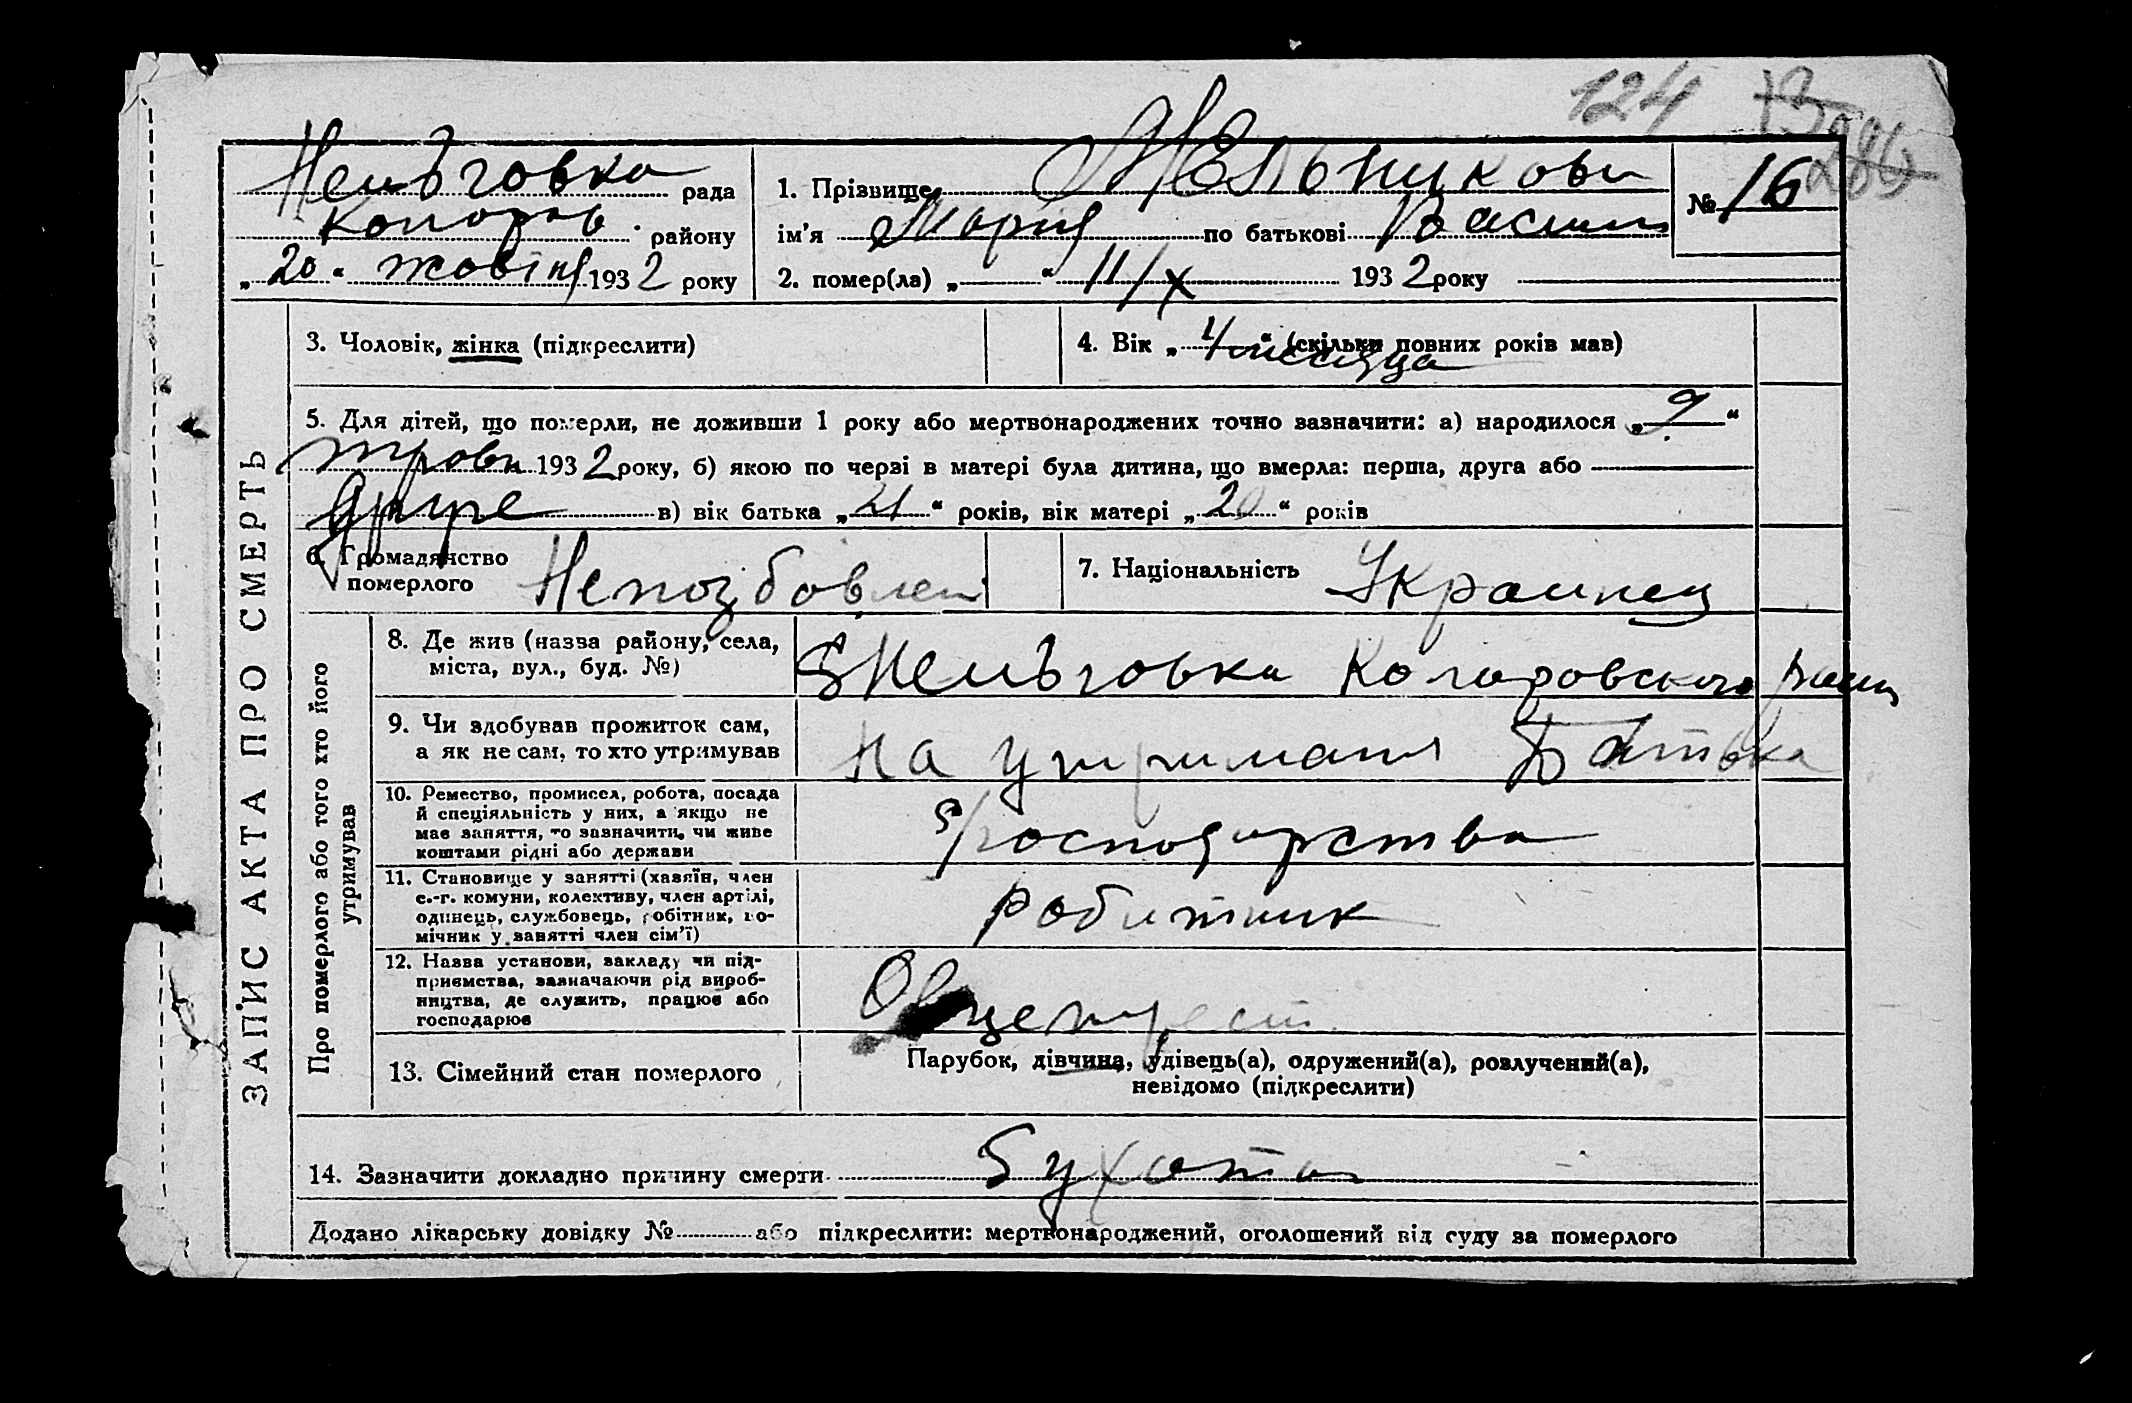 124 13 286
Нельговка рада
Коларов. району
„20“ жовтня 1932 року
1. Прізвище Мельникова
ім’я Мария по батькові Васили
2. помер(ла) „ “ 11/X 1932 року
№ 16
ЗАПИС АКТА ПРО СМЕРТЬ
3. Чоловік, жінка (підкреслити)
4. Вік „4“ (скільки повних років мав)
месяца
5. Для дітей, що померли, не доживши 1 року або мертвонароджених точно зазначити: а) народилося „9“
травн 1932 року, б) якою по черзі в матері була дитина, що вмерла: перша, друга або
друге в) вік батька „21“ років, вік матері „20“ років
6. Громадянство
померлого Непозбовлен
7. Національність Украинец
Про померлого або того хто його
утримував
8. Де жив (назва району, села,
міста, вул., буд. №)
S Нельговка Коларовского
9. Чи здобував прожиток сам,
а як не сам, то хто утримував
На утриманя Батька
10. Ремество, промисел, робота, посада
й спеціяльність у них, а якщо не
має заняття, то зазначити, чи живе
коштами рідні або держави
господарства
11. Становище у занятті (хазяїн, член
с.-г. комуни, колективу, член артілі,
одинець, службовець, робітник, по-
мічник у занятті член сім’ї)
Робитник
12. Назва установи, закладу чи під-
приємства, зазначаючи рід вироб-
ництва, де служить, працює або
господарює
Овцетрест
13. Сімейний стан померлого
Парубок, дівчина, удівець(а), одружений(а), розлучений(а),
невідомо (підкреслити)
14. Зазначити докладно причину смерти Sухота
Додано лікарську довідку № або підкреслити: мертвонароджений, оголошений від суду за померлого